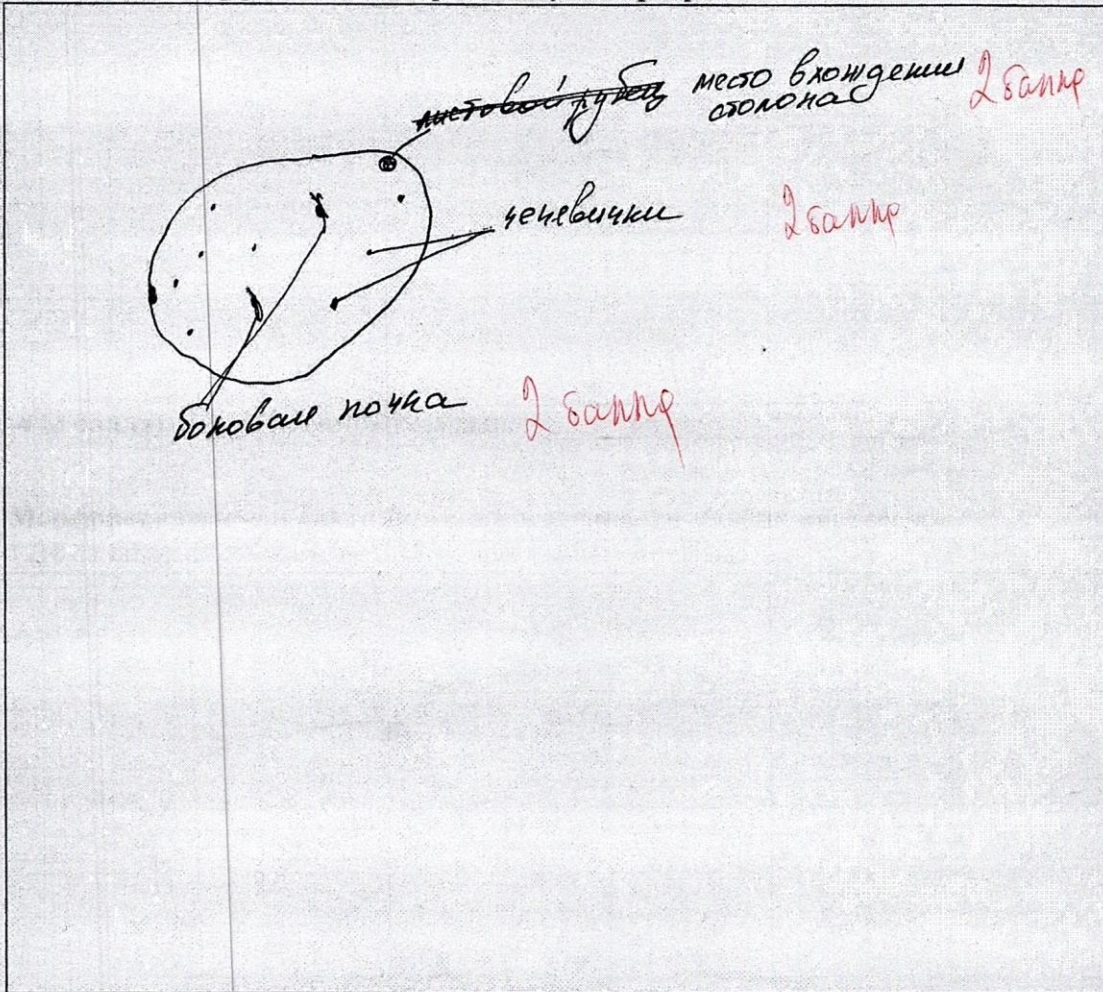 ~~листовой рубец~~ место вхождения 2 балла
столона
чечевички 2 балла
боковая почка 2 балла